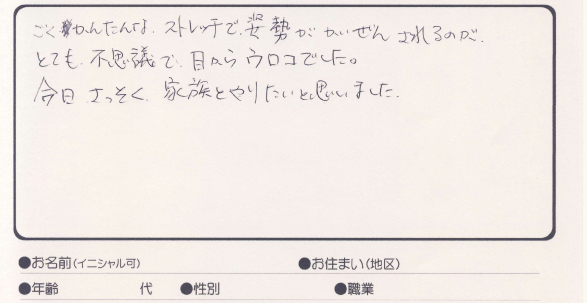 ごくかんたんな、ストレッチで、姿勢がかいぜんされるのが、
とても不思議で、目からウロコでした。
今日さっそく、家族とやりたいと思いました。
●お名前(イニシャル可) ●お住まい(地区)
●年齢 代 ●性別 ●職業